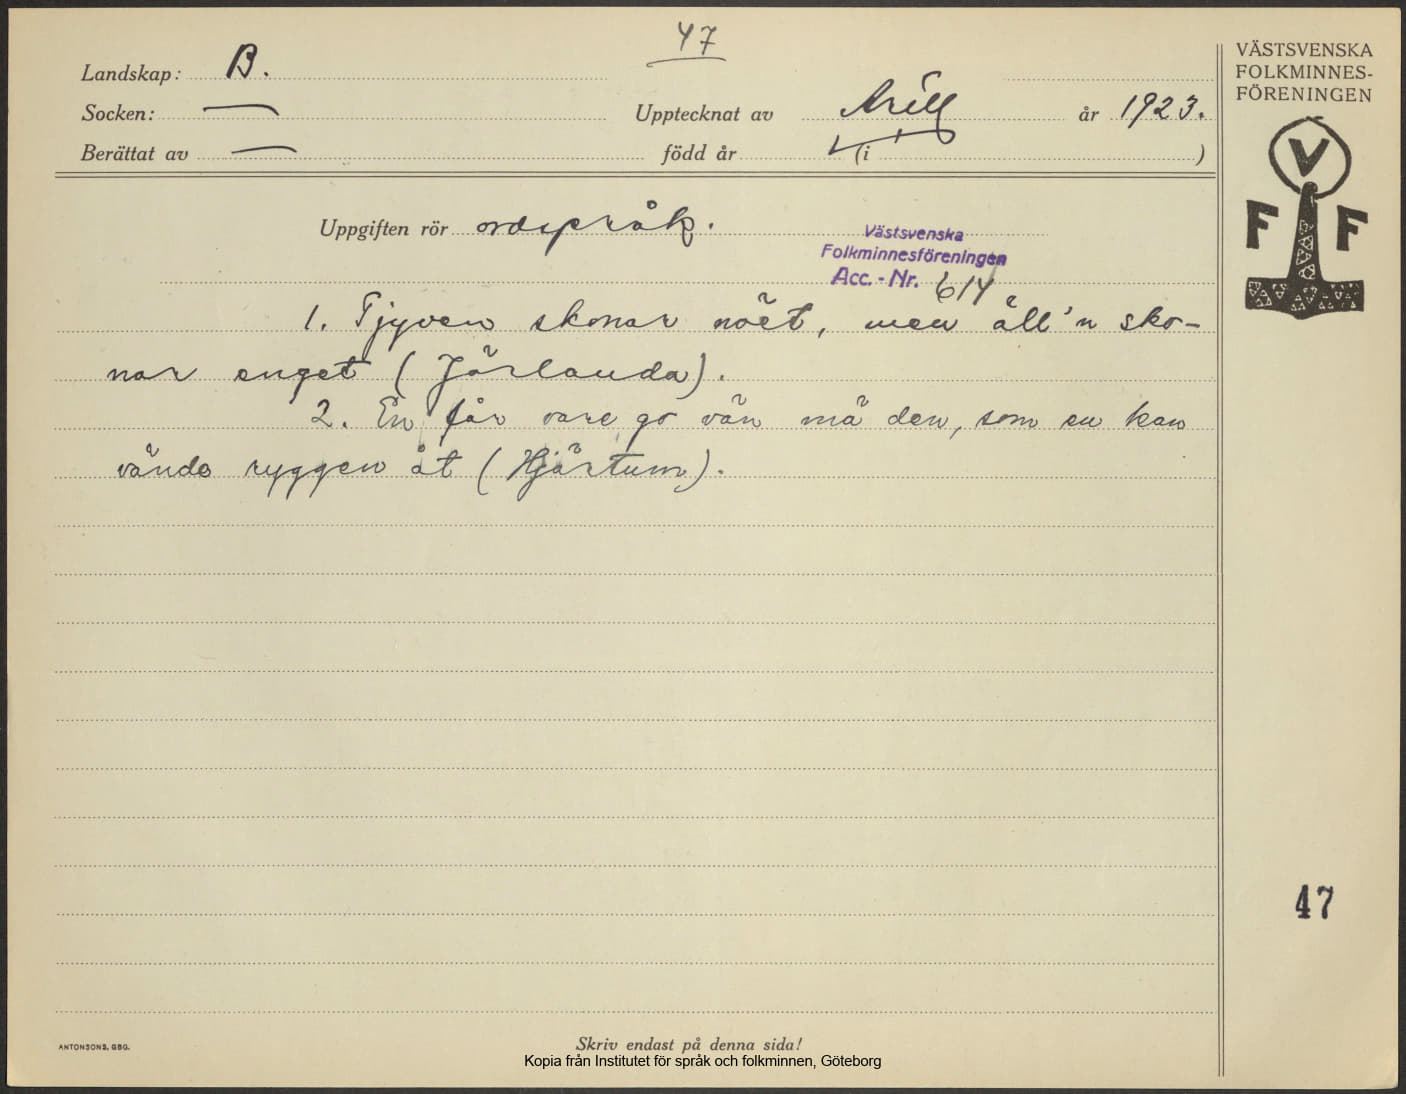 47
Landskap: B.
Socken: —
Upptecknat av Arill år 1923.
Berättat av —
född år (i )
VÄSTSVENSKA
FOLKMINNES-
FÖRENINGEN
V
F F
Uppgiften rör ordspråk.
Västsvenska
Folkminnesföreningen
Acc. - Nr. 614
1. Tjyven skonar nöёt, men äll'n sko-
nar enget (Jörlanda).
2. En får vare go vän mä den, som en kan
vände ryggen åt (Hjärtum).
47
ANTONSONS, GBG.
Skriv endast på denna sida!
Kopia från Institutet för språk och folkminnen, Göteborg